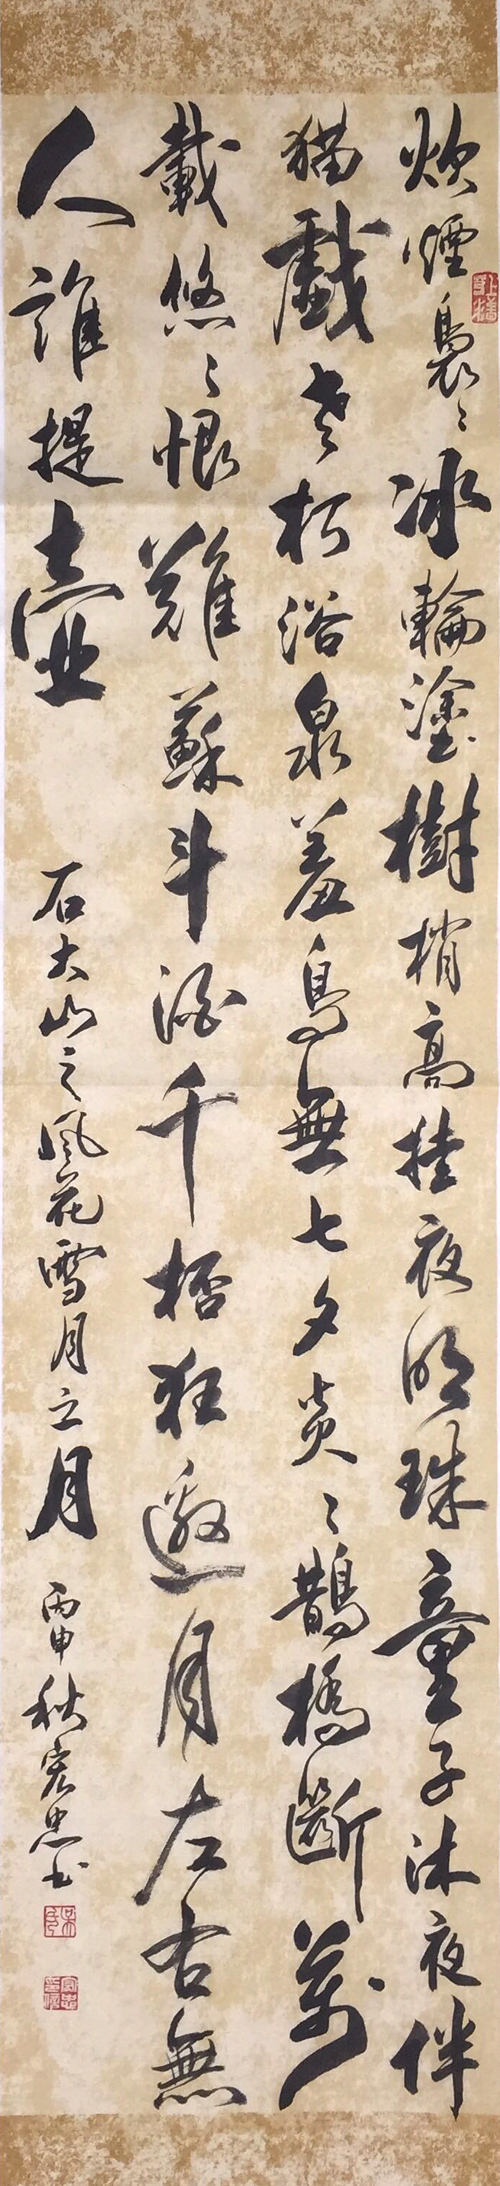 炊煙裊〻冰輪塗樹梢高掛夜明珠童子沐夜伴
猫戲老朽浴泉羞鳥無七夕炎〻鵲橋斷萬
載悠〻恨難蘇斗酒千杯狂邀月左右無
人誰提壺
石大山之風花雪月之月
丙申秋宏忠书